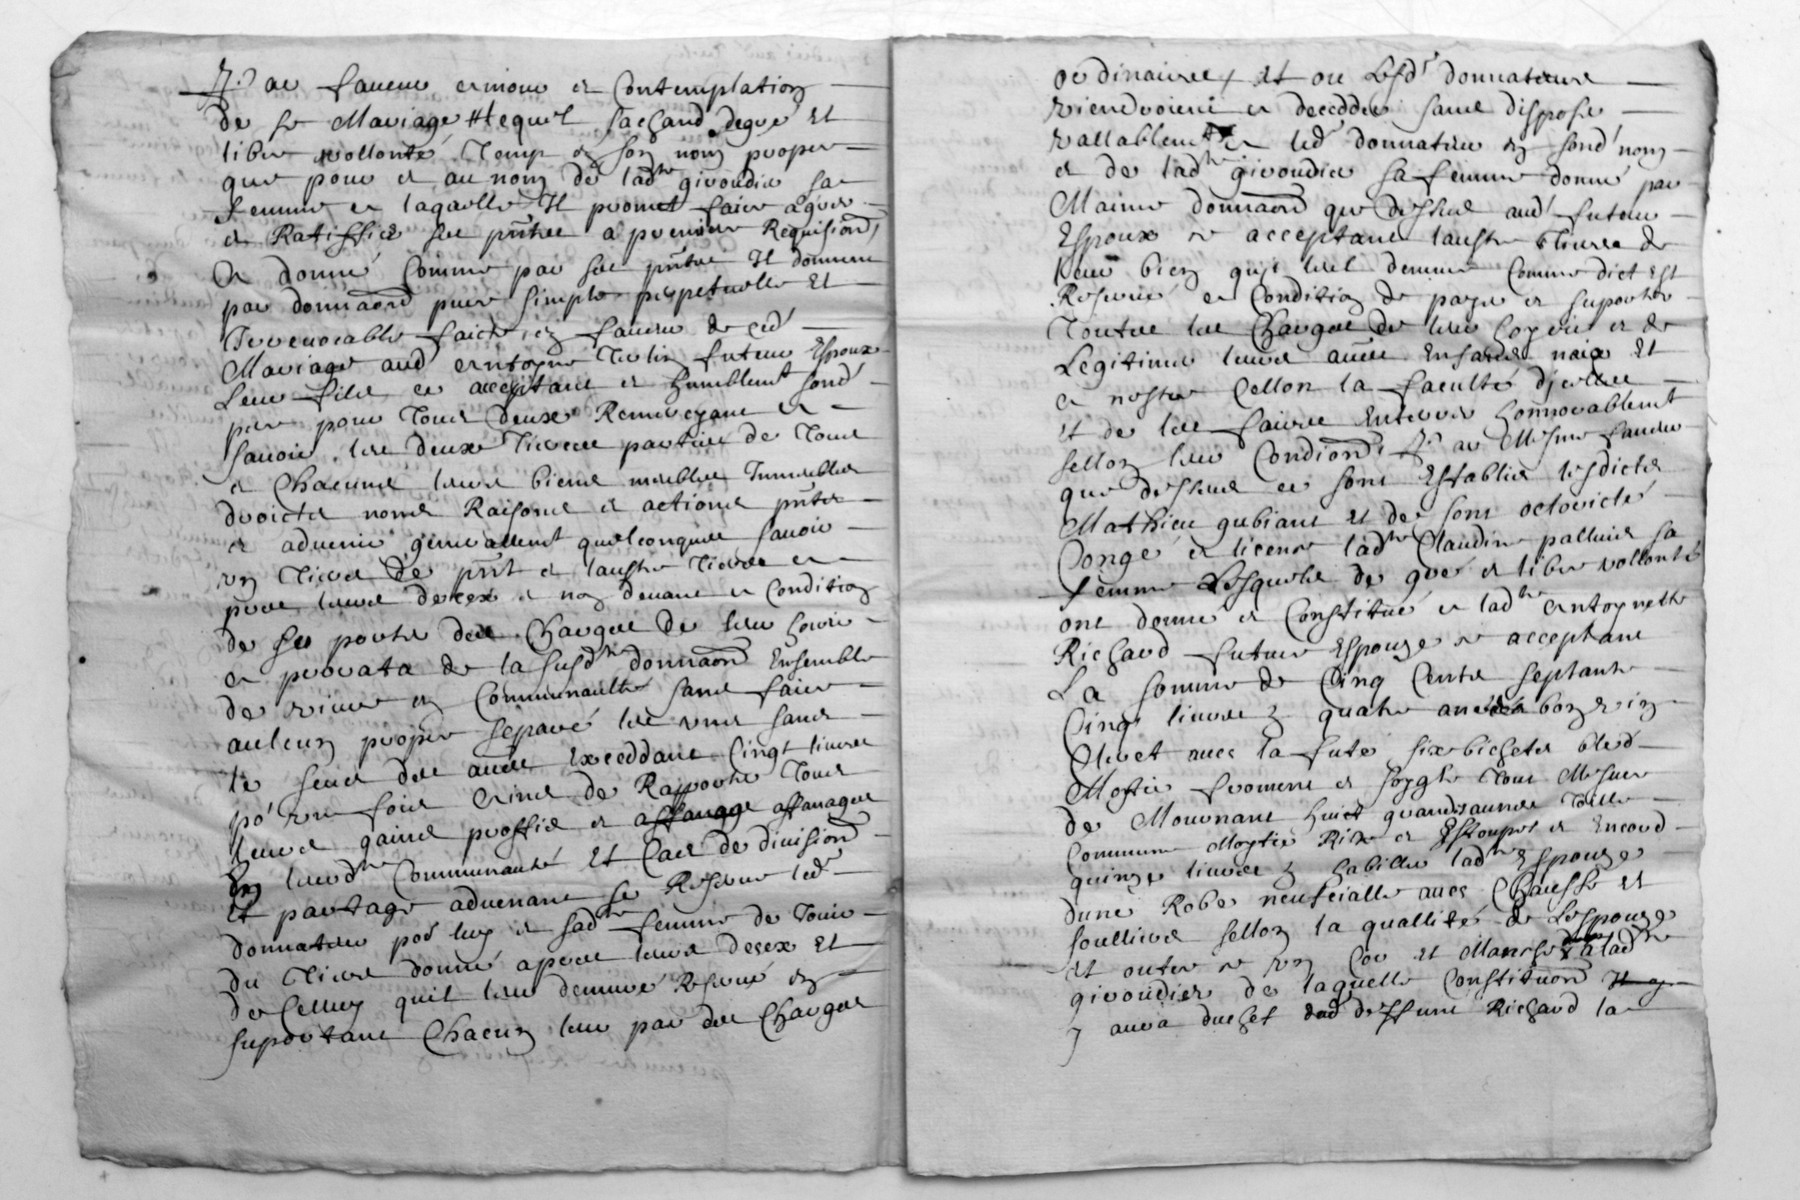 Par faveur amour et Contemplation
de ce Mariage Lequel sachand degré et
libre vollonté Temp en son nom propre
que pour et au nom de lad.te giroudier sa
femme et laquelle Il promet faire agréer
et Ratiffier ses pntes a premiere Requision
A donné Comme par ses pntes Il donnent
par donnaon pure simple perpetuelle et
Irrevocable faicte en faveur de ced
Mariage aud antoyne futeur Espoux
Leur fils ce acceptant et humblemt sond
pere pour Tous deux Remercyant et
Savoir les deux Tierces parties de Tous
et Chacuns leurs biens meubles Immeubles
droicts noms Raisons et actions pnts
et advenir generallemt quelconques savoir
un Tiers de pnt et laustre Tiers et
pour leurs decex et non devant et Condition
de su porter des Charges de leur hoirie
et prorata de la susd.te donnaon Ensemble
de vivre en Communaulté sans faire
aulcun propre separé les uns sans
le sceus des aues Exceddant Cinqt livres
po.r une fois Ains de Rapporter Tous
leurs gains proffis et affanages
En leurd.te Communauté Et Cas de division
Et partage advenant se Reserve led.
donnateur por luy et sad.te femme de Jouir
du Tiers donné apres leurs decex Et
de Celluy quil leur demure Reservé en
suportant Chacun leur par des Charges
ordinaires / Et ou Lesd.r donnateurs
viendroient a decedder sans disposer
vallablemt et led. donnateur en sond nom
et de lad.te giroudier sa femme donné par
Mesme donnaon que dessus aud futeur
Espoux ce acceptant laustre Tierce de
leur bien qui leur demure Comme dict Est
Reservé et Condition de payer et suporter
Toutes les Charges de leur hoyrie et de
Legitimer leurs aues Enfants naix Et
a nestre Cellon la faculté dicelle
Et de les faires Enterrer honnorablemt
sellon leur Condiond Par Mesme faveur
que dessus ce sont Establis lesdicts
Mathieu gubiant Et de sont octorictés
Congé et licence lad.te Claudine palluis sa
femme Lesquels de gré et libre vollonté
ont donné et Constitué a lad.te antoynette
Richard future Espouze ce acceptant
La somme de Cinq Cents septante
Cinq livres quatre anées bon vin
Clevet avec la fute six bichets bled
Moytie froment et soygle Tout Mesure
de Mournant huict grands aunes Toille
Commune Moytie Rite et Estoupes et Encord
quinze livres habille lad.te Espouze
dune Robe neufcialle avec Chausse Et
soulliers sellon la quallité de Lespouze
Et outre ce un Cor et Manche a lad.te
giroudier de laquelle Constituond
y aura du chef dud deffunt Richard la